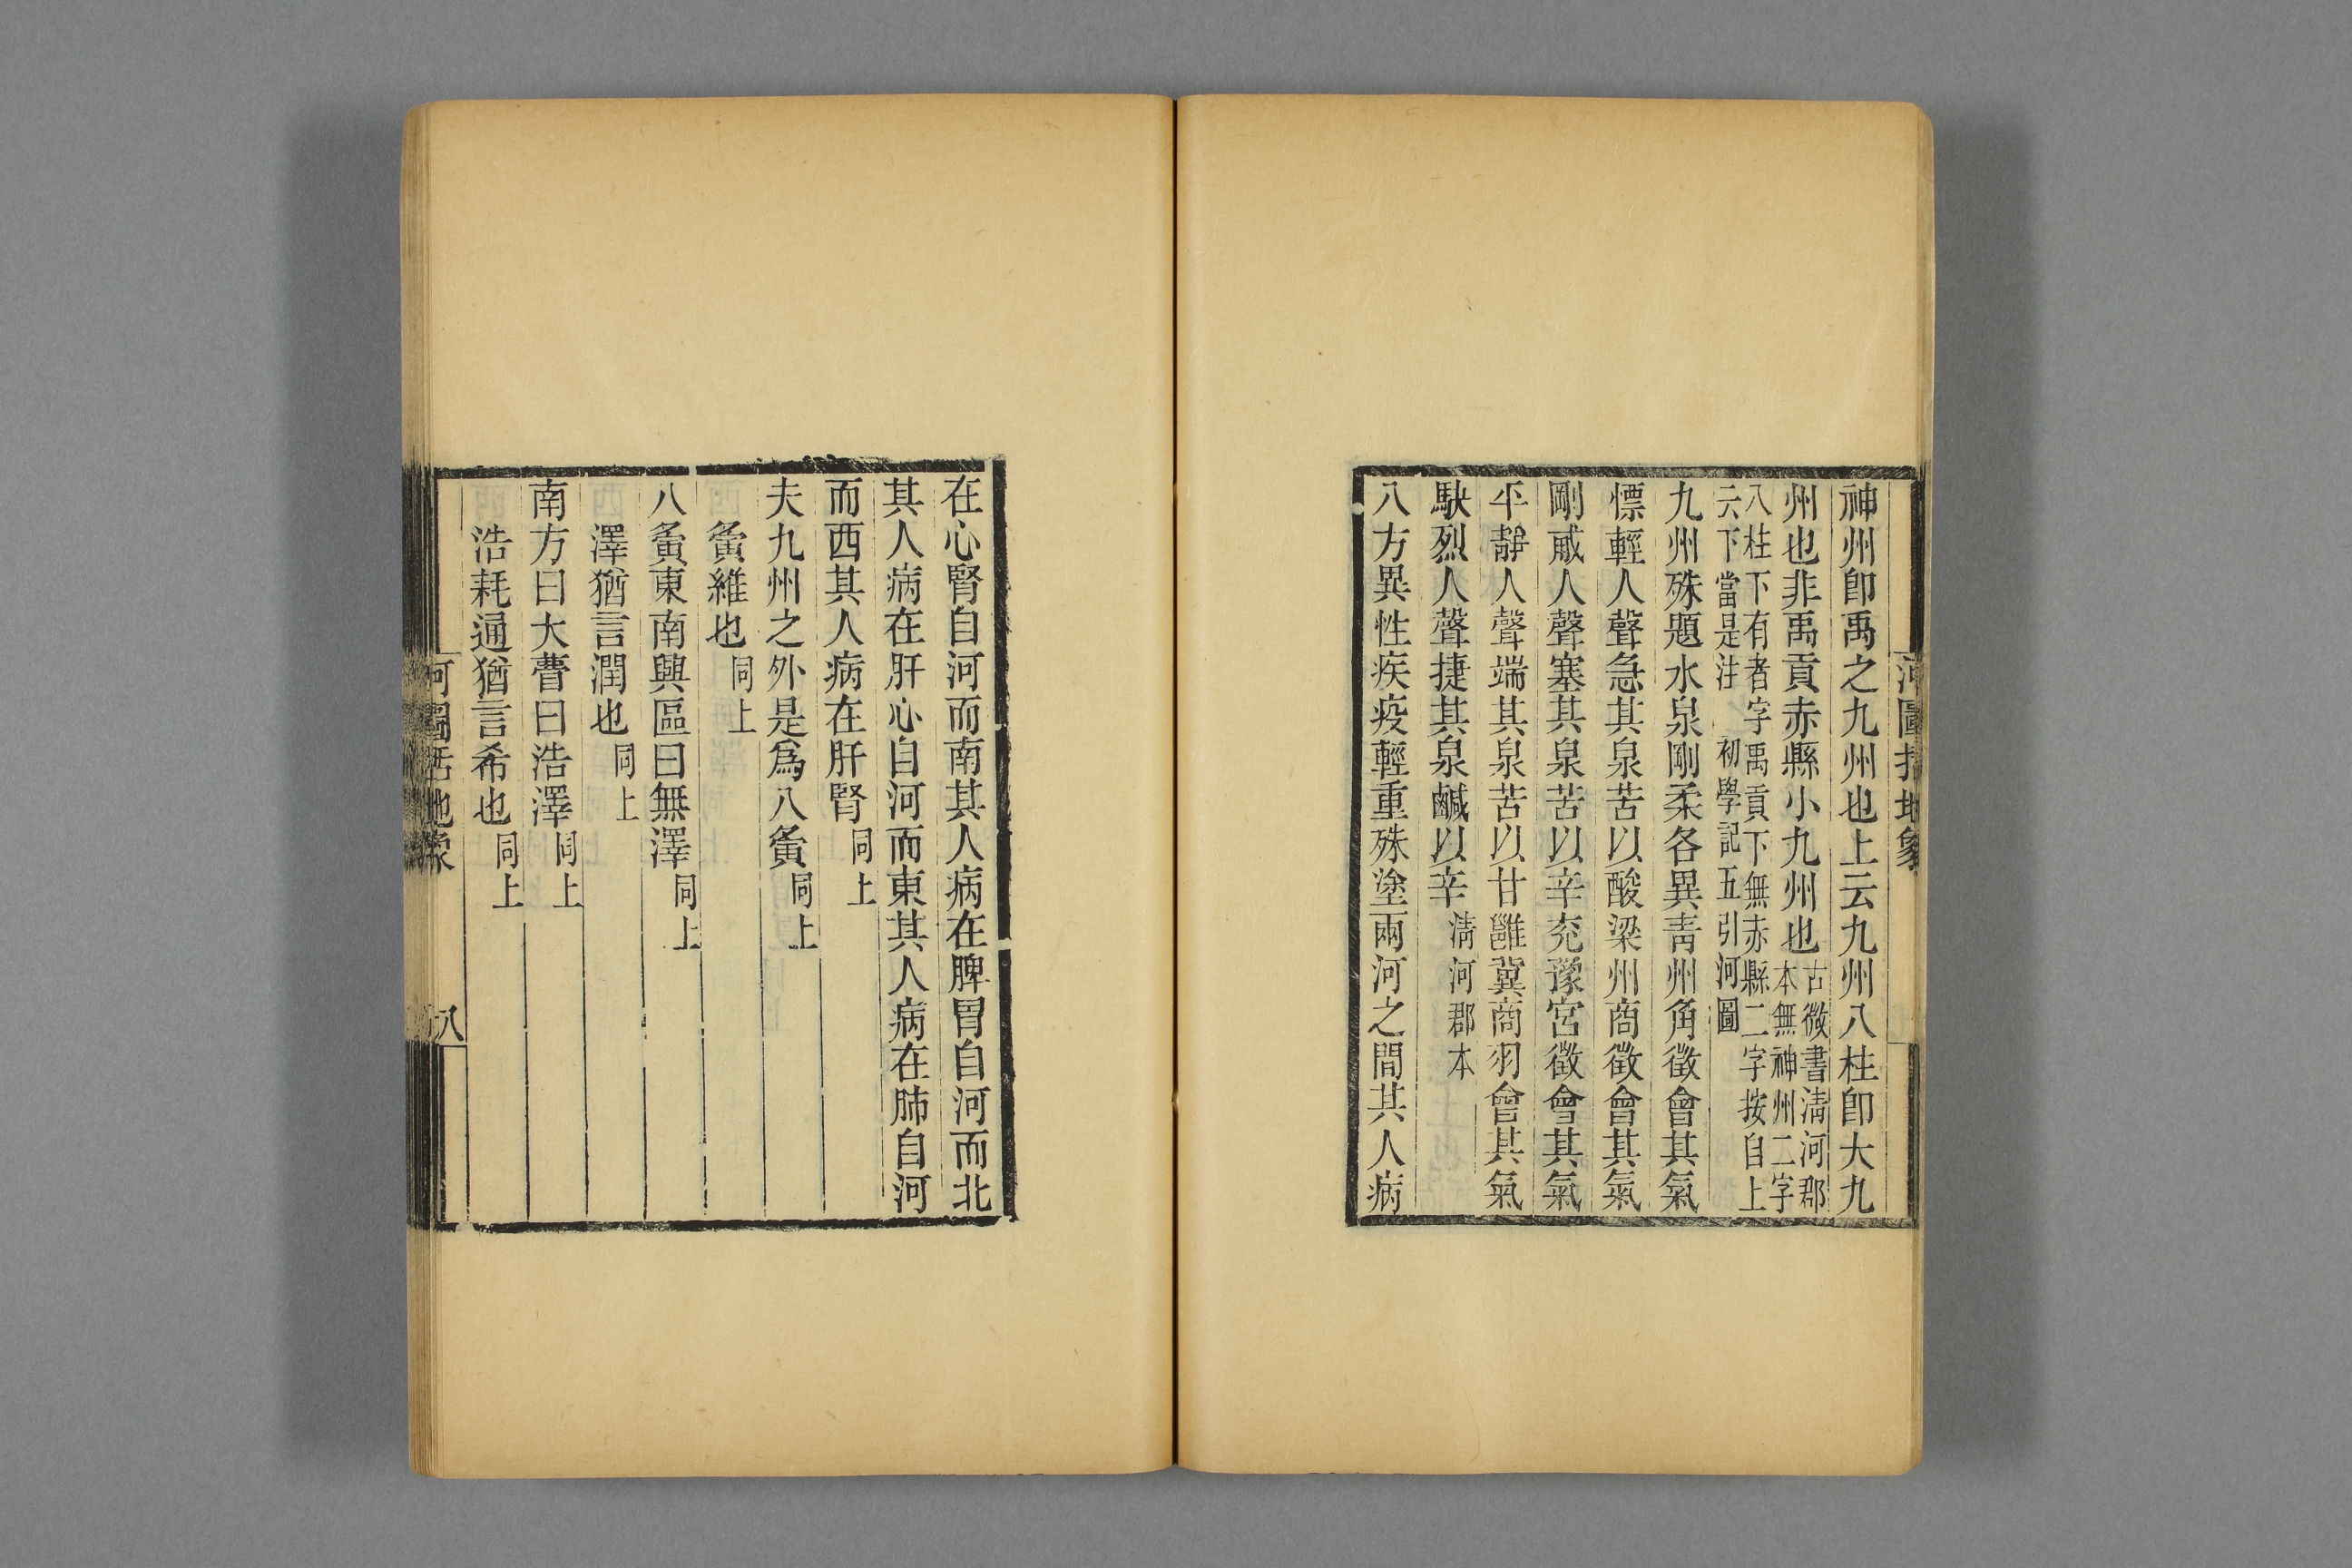 河圖括地象
神州卽禹之九州也上云九州八柱卽大九
州也非禹貢赤縣小九州也古微書淸河郡
本無神州二字
八柱下有者字禹貢下無赤縣二字按自上
云下當是注 初學記五引河圖
九州殊題水泉剛柔各異靑州角徵會其氣
慓輕人聲急其泉苦以酸梁州商徵會其氣
剛威人聲塞其泉苦以辛兖豫宮徵會其氣
平靜人聲端其泉苦以甘雝冀商羽會其氣
駃烈人聲捷其泉鹹以辛淸河郡本
八方異性疾疫輕重殊塗兩河之間其人病
在心腎自河而南其人病在脾胃自河而北
其人病在肝心自河而東其人病在肺自河
而西其人病在肝腎同上
夫九州之外是爲八夤同上
夤維也同上
八夤東南興區曰無澤同上
澤猶言潤也同上
南方曰大瞢曰浩澤同上
浩耗通猶言希也同上
河圖括地象
八